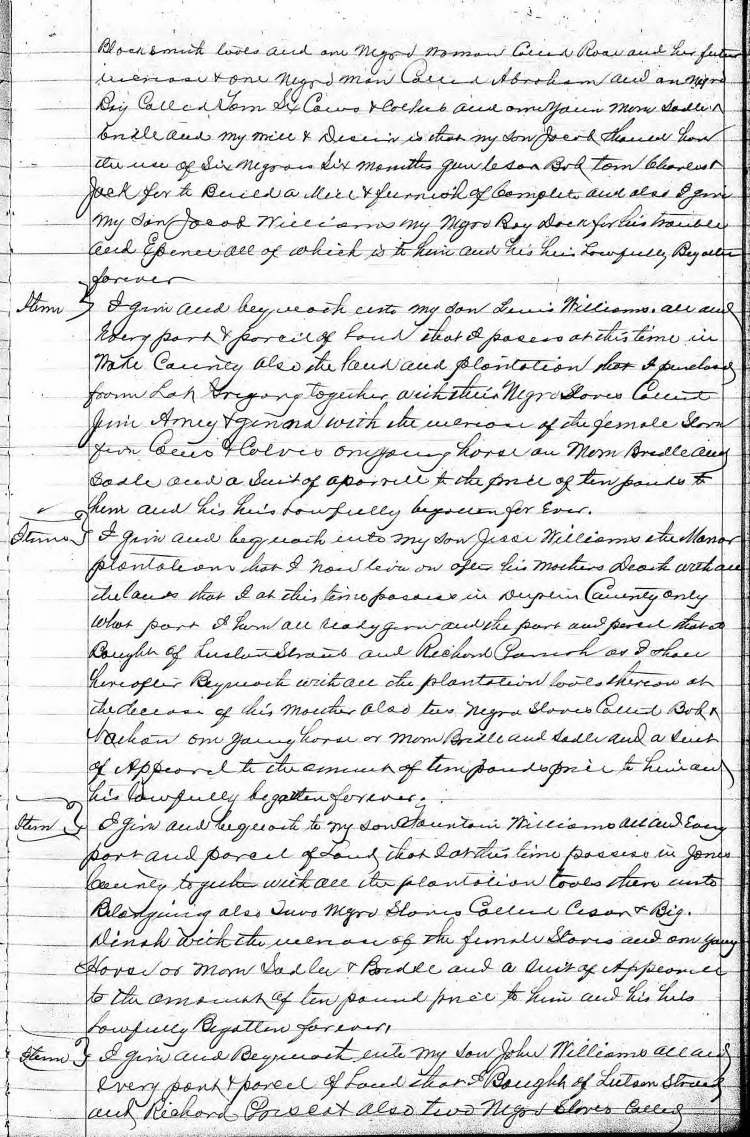 Blacksmith tools and one Negro Woman Called Rose and her future
increase & one Negro man Called Abraham and an Negro
Boy Called Tom Six Cows & Calves and one Young Mare Sadle &
bridle and my will & Desire is that my son Jacob should have
the use of Six Negroes Six months Cesar Bob tom Charles &
Jack for to Build a Mill & furnish of Complete and also I give
my son Jacob Williams my Negro Boy Dack for his trouble
and Expence all of which is to him and his heirs Lawfully Begotten
forever
Item } I give and beqneath unto my son Lewis Williams all and
Every part & parcel of Land that I posess at this time in
Wake County also the land and plantation that I purchased
from Lot Gregory together with three Negro Slaves Called
Jim Amey & ginna with the increase of the female Slave
five Cows & Calves one young horse or Mare Bridle and
Sadle and a Suit of aparrell to the price of ten pounds to
him and his heirs Lawfully begotten for Ever.
Item } I give and beqneath unto my son Jesse Williams the Manor
plantation that I now live on after his Mothers Death with all
the lands that I at this time possess in Duplin County only
what part I have all ready given and the part and percel that I
Bought of Strand and Richard as I shall
hereafter Bequeath with all the plantation tools thereon at
the decease of his mother also two Negro Slaves Called Bob &
one young horse or mare Bridle and Sadle and a Suit
of Appearel to the amount of ten pounds price to him and
his lawfully begotten forever.
Item } I give and bequeath to my son Fountain Williams all and Every
part and parcel of Land that I at this time possess in Jones
County together with all the plantation tools there unto
Belonging also Two Negro Slaves Called Cesar & Big.
Dinah with the increase of the female Slaves and one young
Horse or Mare Sadle & Bridle and a Suit of Appearell
to the amount of ten pound price to him and his heirs
Lawfully Begotten forever.
Item } I give and Bequeath unto my son John Williams all and
every part & parcel of Land that I Bought of Lutson Strand
and Richard also two Negro Slaves Called